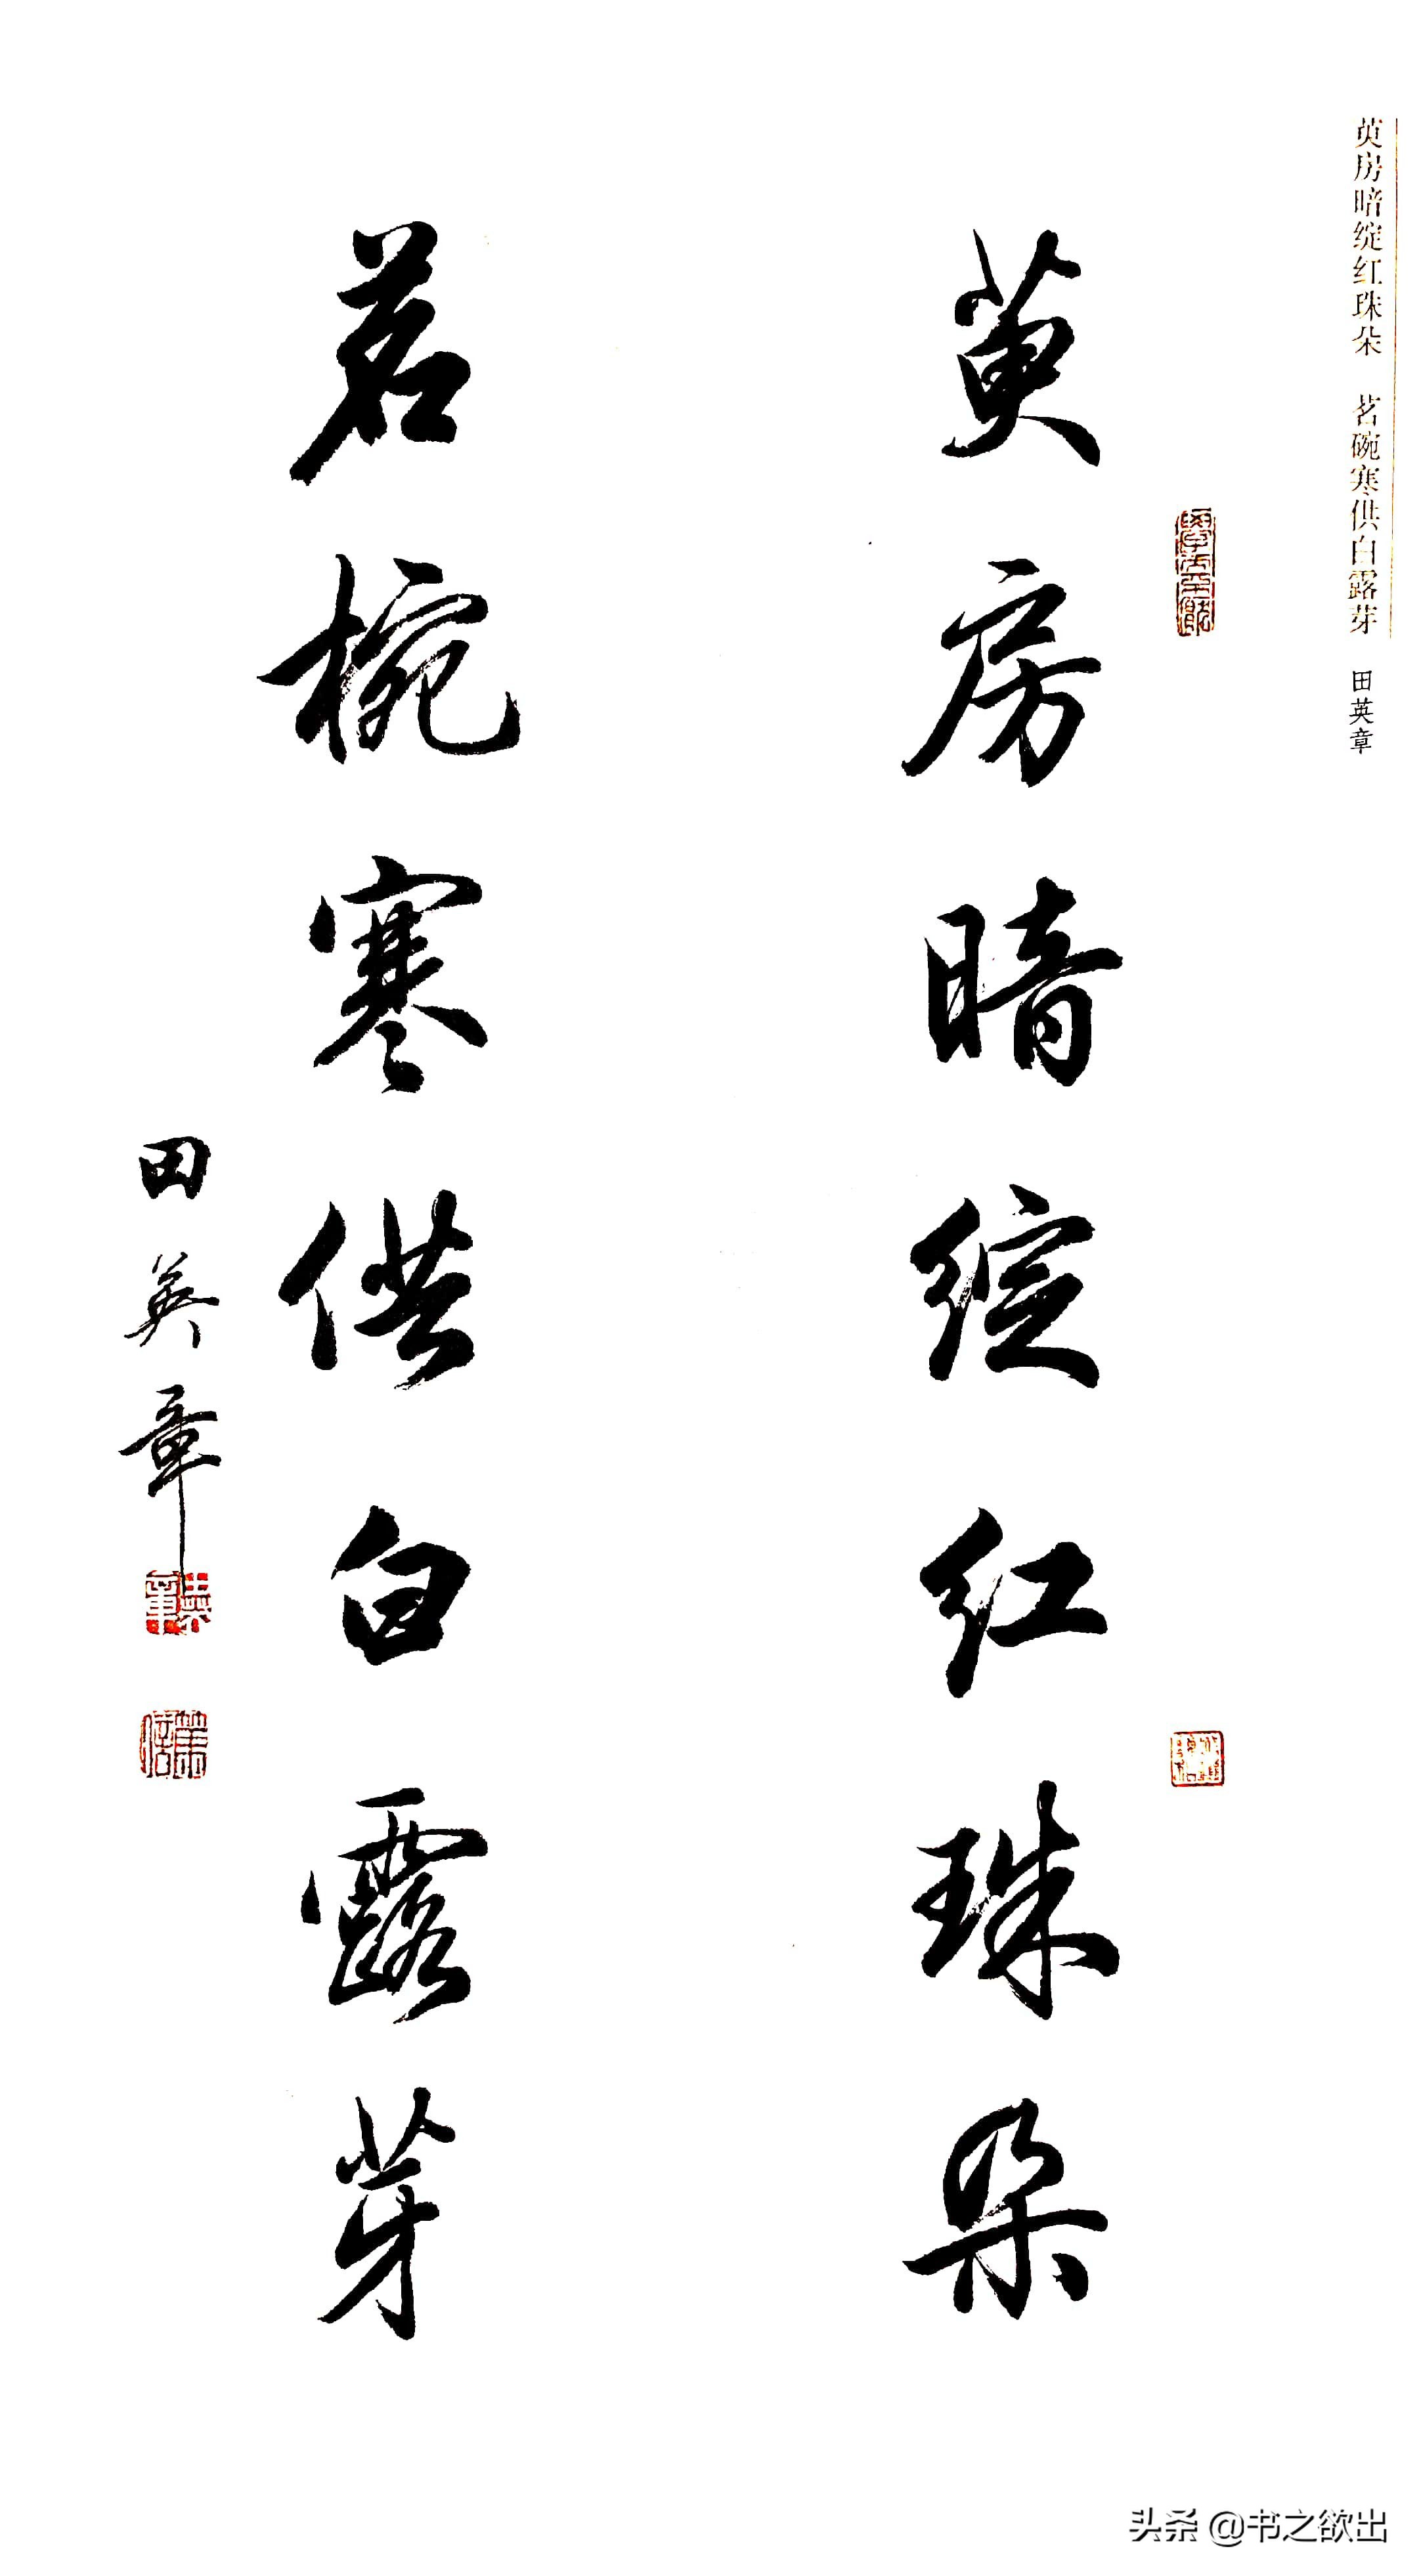 萸房暗绽红珠朵 茗碗寒供白露芽 田英章
萸房暗綻红珠朵
茗椀寒供白露芽
田英章
头条 @书之欲出